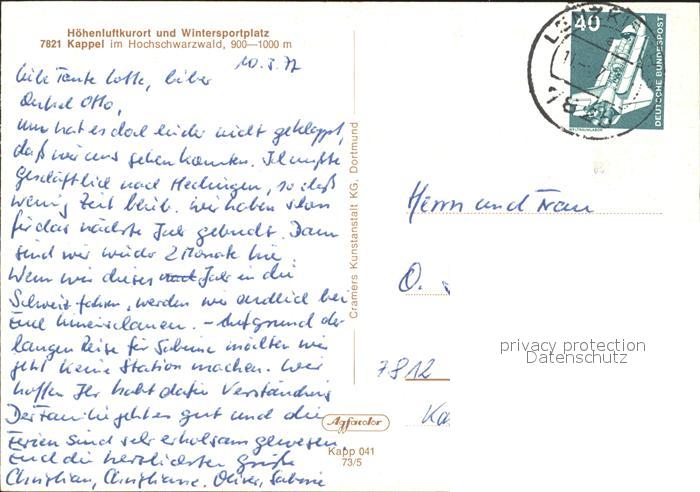 Höhenluftkurort und Wintersportplatz
7821 Kappel im Hochschwarzwald, 900—1000 m
10.3.77
Liebe Tante Lotte, lieber
Onkel Otto,
nun hat es doch leider nicht geklappt,
daß wir uns sehen konnten. Ich mußte
geschäftlich nach Hechingen, so daß
wenig Zeit blieb. Wir haben schon
für das nächste Jahr gebucht. Dann
sind wir wieder 2 Monate hier.
Wenn wir dieses Jahr in die
Schweiz fahren, werden wir endlich bei
Euch hineinschauen. - Aufgrund der
langen Reise für Sabine möchten wir
jetzt keine Station machen. Wir
hoffen Ihr habt dafür Verständnis
Der Familie geht es gut und die
Ferien sind sehr erholsam gewesen.
Euch die herzlichsten Grüße
Christian, Christiane, Oliver, Sabine
Cramers Kunstanstalt KG, Dortmund
Agfacolor
Kapp 041
73/5
40
DEUTSCHE BUNDESPOST
WELTRAUMLABOR
Herrn und Frau
O.
7812
privacy protection
Datenschutz